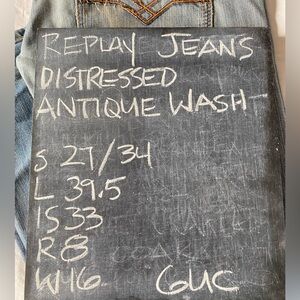 REPLAY JEANS
DISTRESSED
ANTIQUE WASH
S 27/34
L 39.5
IS 33
R 8
W 16 GUC